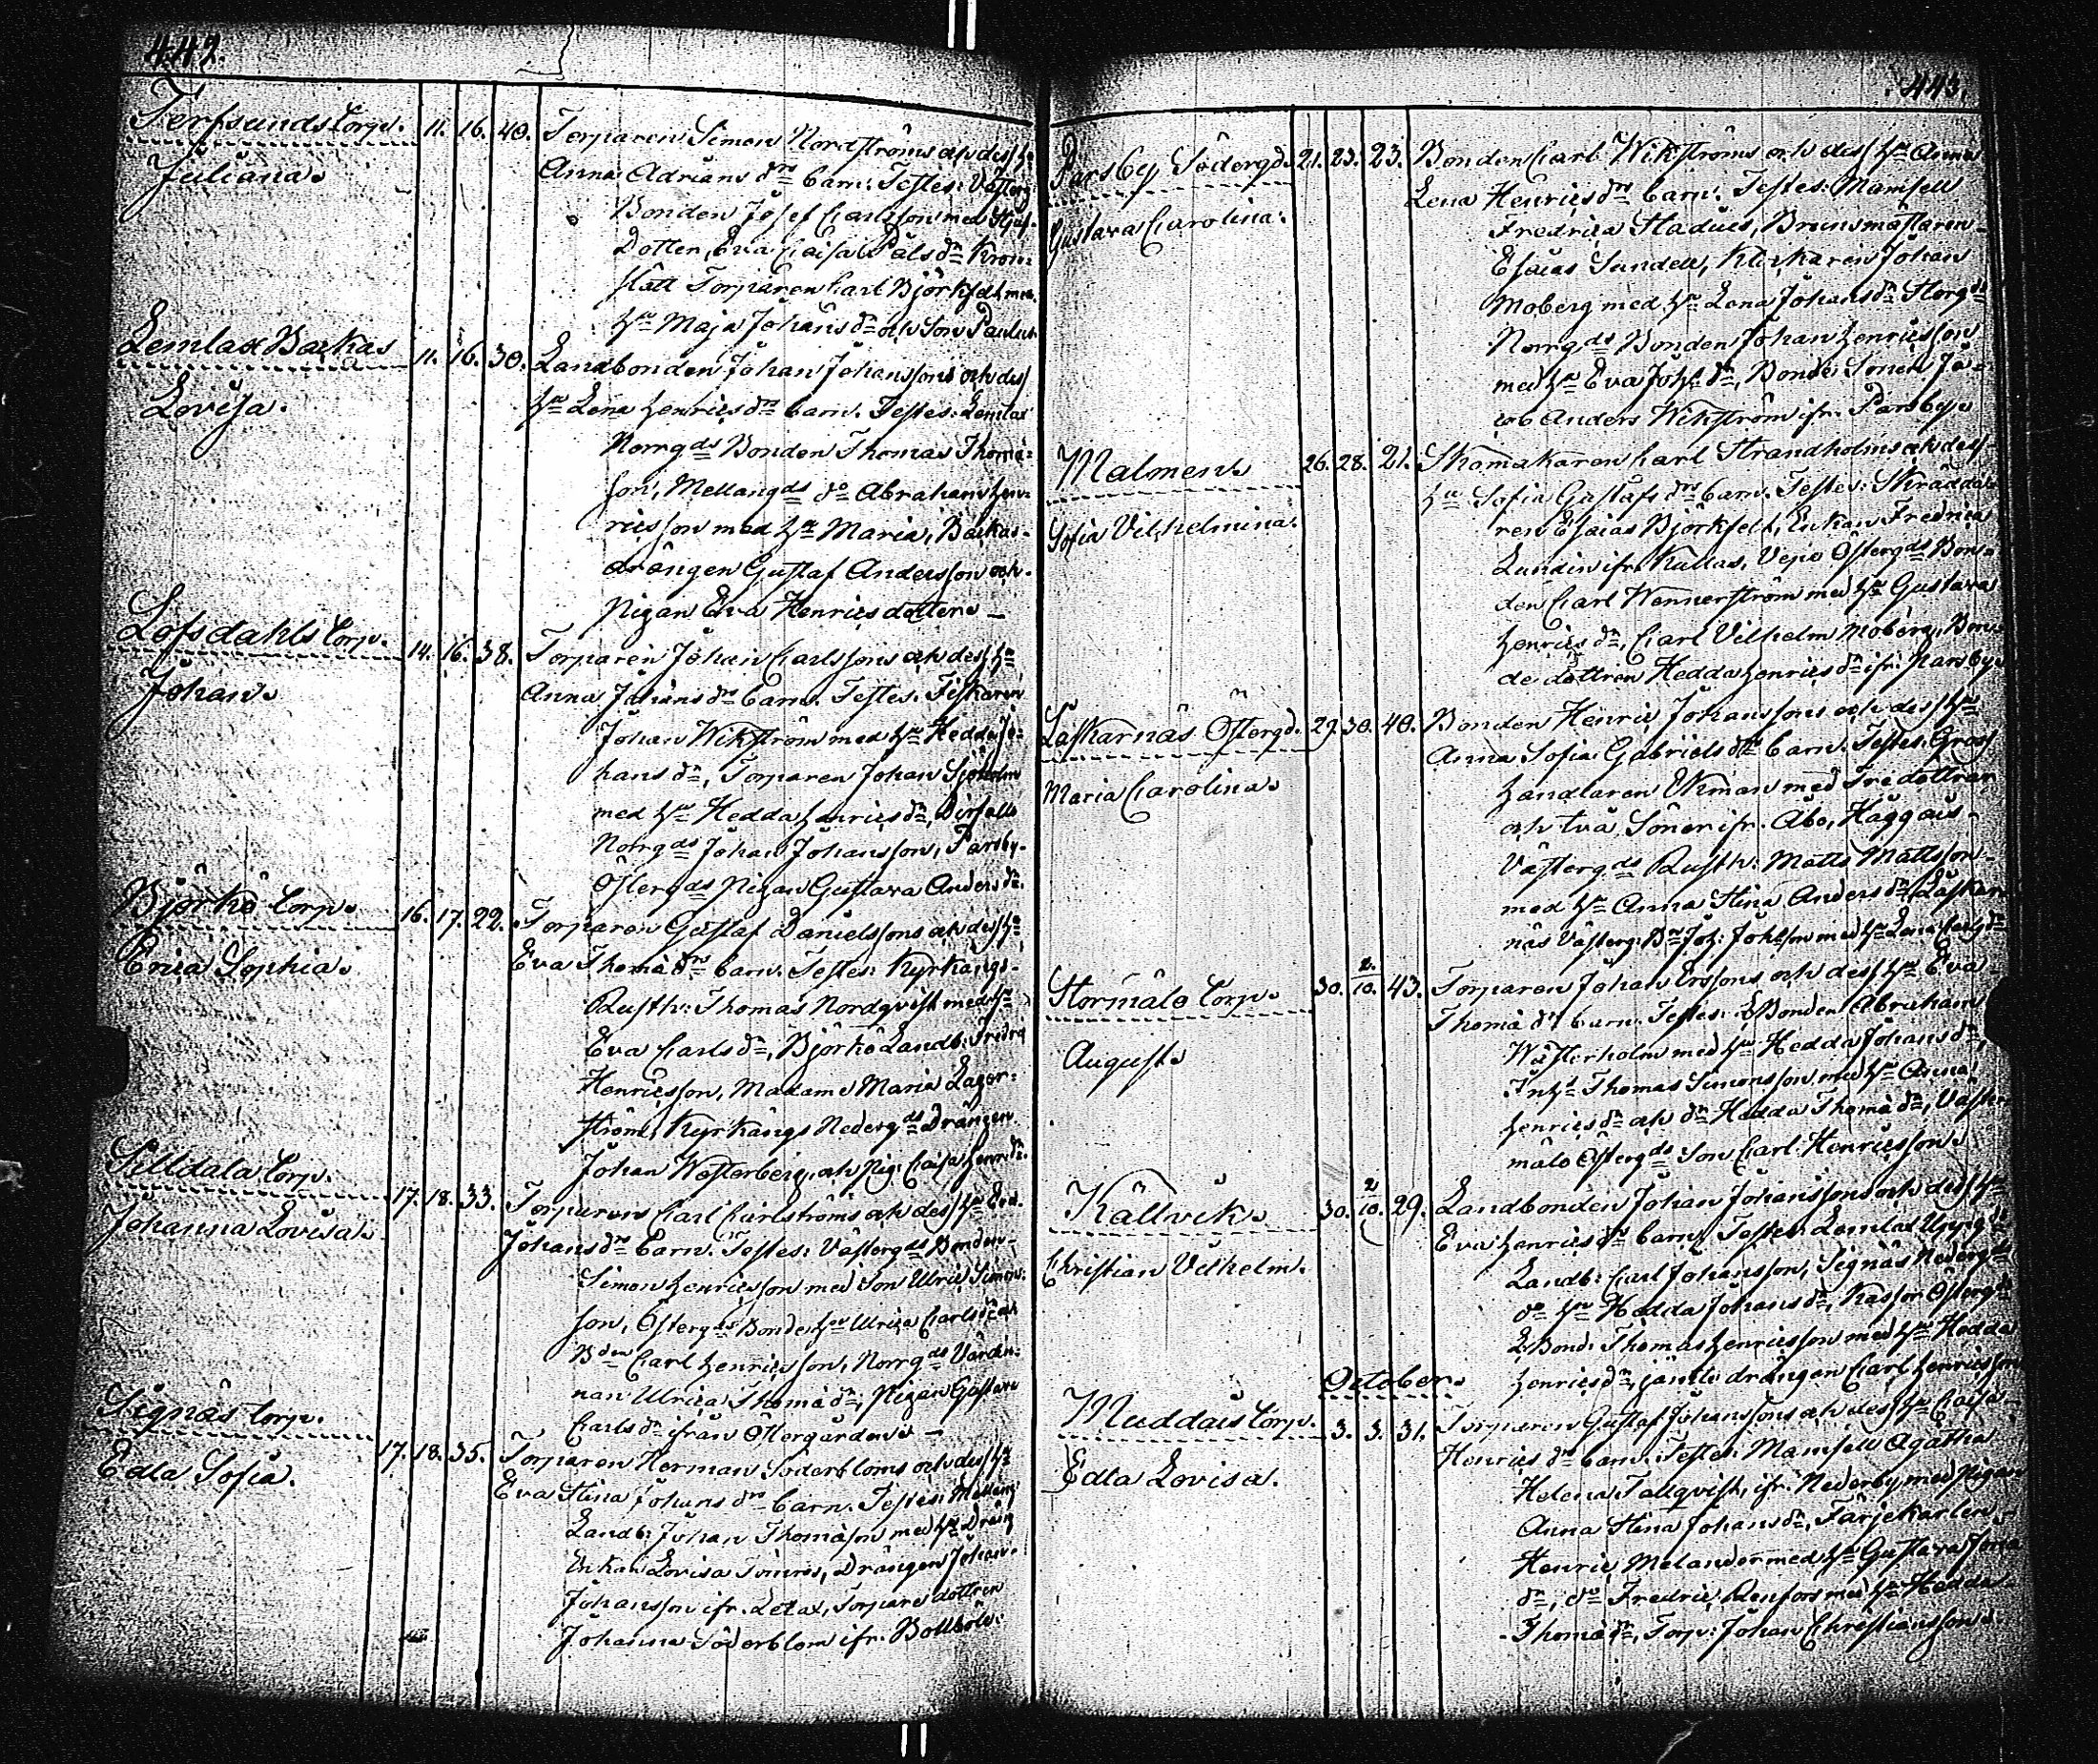 442.
Terfsunds Torp. 11. 16. 40. Torparen Simon Nordströms och dess h
Juliana. Anna Adrians drs barn. Testes: Västerg
Bonden Josef Carlsson med Styf-
Dotter, Eva Caisa Påls dr
Torparen Carl Björksell med
hu Maja Johans dr och Son Paulus
Lemlax Backas 11. 16. 30. Landbonden Johan Johanssons och dess
Lovisa. hu Lena Henrics drs barn. Testes: Lemlax
Norrgds Bonden Thomas Thoma-
son, Mellangds do Abraham Hen-
ricsson med hu Maria, Backas-
drängen Gustaf Andersson och
Pigan Eva Henricsdotter. —
Lofsdahls Torp. 14. 16. 38. Torparen Johan Carlssons och dess hu
Johan. Anna Johans drs barn. Testes. Fiskaren
Johan Wikström med hu Hedda Jo-
hans dr, Torparen Johan Sjöholm
med hu Hedda Henrics dr,
Norrgds Johan Johansson, Parsby-
Östergds Pigan Gustava Anders dr.
Björkö Torp. 16. 17. 22. Torparen Gustaf Danielssons och dess hu
Erica Sophia. Eva Thomæ drs barn. Testes: Kyrkängs-
Rusth: Thomas Nordqvist med hu
Eva Carls dr, Björkö Landb: Fredric
Henricsson, Madame Maria Lager-
ström, Kyrkängs Nedergds Drängen
Johan Westerberg och Pig: Caisa Henr: dr.
Silldala Torp. 17. 18. 33. Torparen Carl Carlströms och dess hu Eva
Johanna Lovisa. Johans drs barn. Testes: Västergds Bonden
Simon Henricsson med Son Ulric Simons-
son, Östergds Bonde hu Ulrica Carls dr och
Bden Carl Henricsson, Norrgds Värdin-
nan Ulrica Thomæ dr, Pigan Gustava
Carls dr ifrån Östergården. —
Signäs Torp. 17. 18. 35. Torparen Herman Söderbloms och dess hu
Edla Sofia. Eva Stina Johans drs barn. Testes: Mellang
Landb: Johan Thomason med hu Dräng
Enkan Lovisa, Drängen Johan
Johansson ifr. Lelax, Torpare dottren
Johanna Söderblom ifr. Bollböle.
443.
Parsby Södergd. 21. 23. 23. Bonden Carl Wikströms och dess hu Anna
Gustava Carolina. Lena Henrics drs barn. Testes: Mamsell
Fredrica Stadius, Brunsmästaren
Esaias Sundell, Klockaren Johan
Moberg med hu Lena Johans dr Storgds
Norrgds Bonden Johan Henricsson
med hu Eva Joh: dr, Bonde Sonen Ja-
cob Anders Wikström ifr. Parsby.
Malmen. 26. 28. 21. Skomakaren Carl Strandholms och dess
Sofia Vilhelmina. hu Sofia Gustafs drs barn. Testes: Skrädda-
ren Esaias Björksell, Enkan Fredrica
Lundin ifr. Kullas, Vejo Östergds Bon-
den Carl Wennerström med hu Gustava
Henrics dr, Carl Vilhelm Moberg, Bon-
de dottren Hedda Henrics dr ifr. Parsby.
Laskarnäs Östergd. 29. 30. 40. Bonden Henric Johanssons och dess hu
Maria Carolina. Anna Sofia Gabriels drs barn. Testes. Gross
handlaren Ekman med Tre döttrar
och två Söner ifr. Åbo, Häggais
Västergds Rusth: Matts Mattsson
med hu Anna Stina Anders dr, Laskar-
näs Västerg: Bn Joh: Johsson med hu Lena Carls dr
Stormälö Torp. 30. 2/10. 43. Torparen Johan Erssons och dess hu Eva
August. Thomæ drs barn. Testes: LBonden Abraham
Wästerholm med hu Hedda Johans dr,
Inhs Thomas Simonsson med hu Anna
Henrics dr och dr Hedda Thomæ dr, Väster
mälö Östergds Son Carl Henricsson.
Källvik. 30. 2/10. 29. Landbonden Johan Johanssons och dess hu
Christian Vilhelm. Eva Henrics drs barn. Testes: Lemlax Uppgds
Landb: Carl Johansson, Signäs Nedergds
do hu Hedda Johans dr, Kassor Östergds
LBond: Thomas Henricsson med hu Hedda
Henrics dr, jämte drängen Carl Henricsson
October.
Muddais Torp. 3. 5. 31. Torparen Gustaf Johanssons och dess hu Caisa
Edla Lovisa. Henrics drs barn. Testes. Mamsell Agatha
Helena Tallqvist, ifr. Nederby med Pigan
Anna Stina Johans dr, Färjekarlen
Henric Melander med hu Gustava
dr, do Fredric Renfors med hu Hedda
Thomæ dr, Torp: Johan Christiansson.